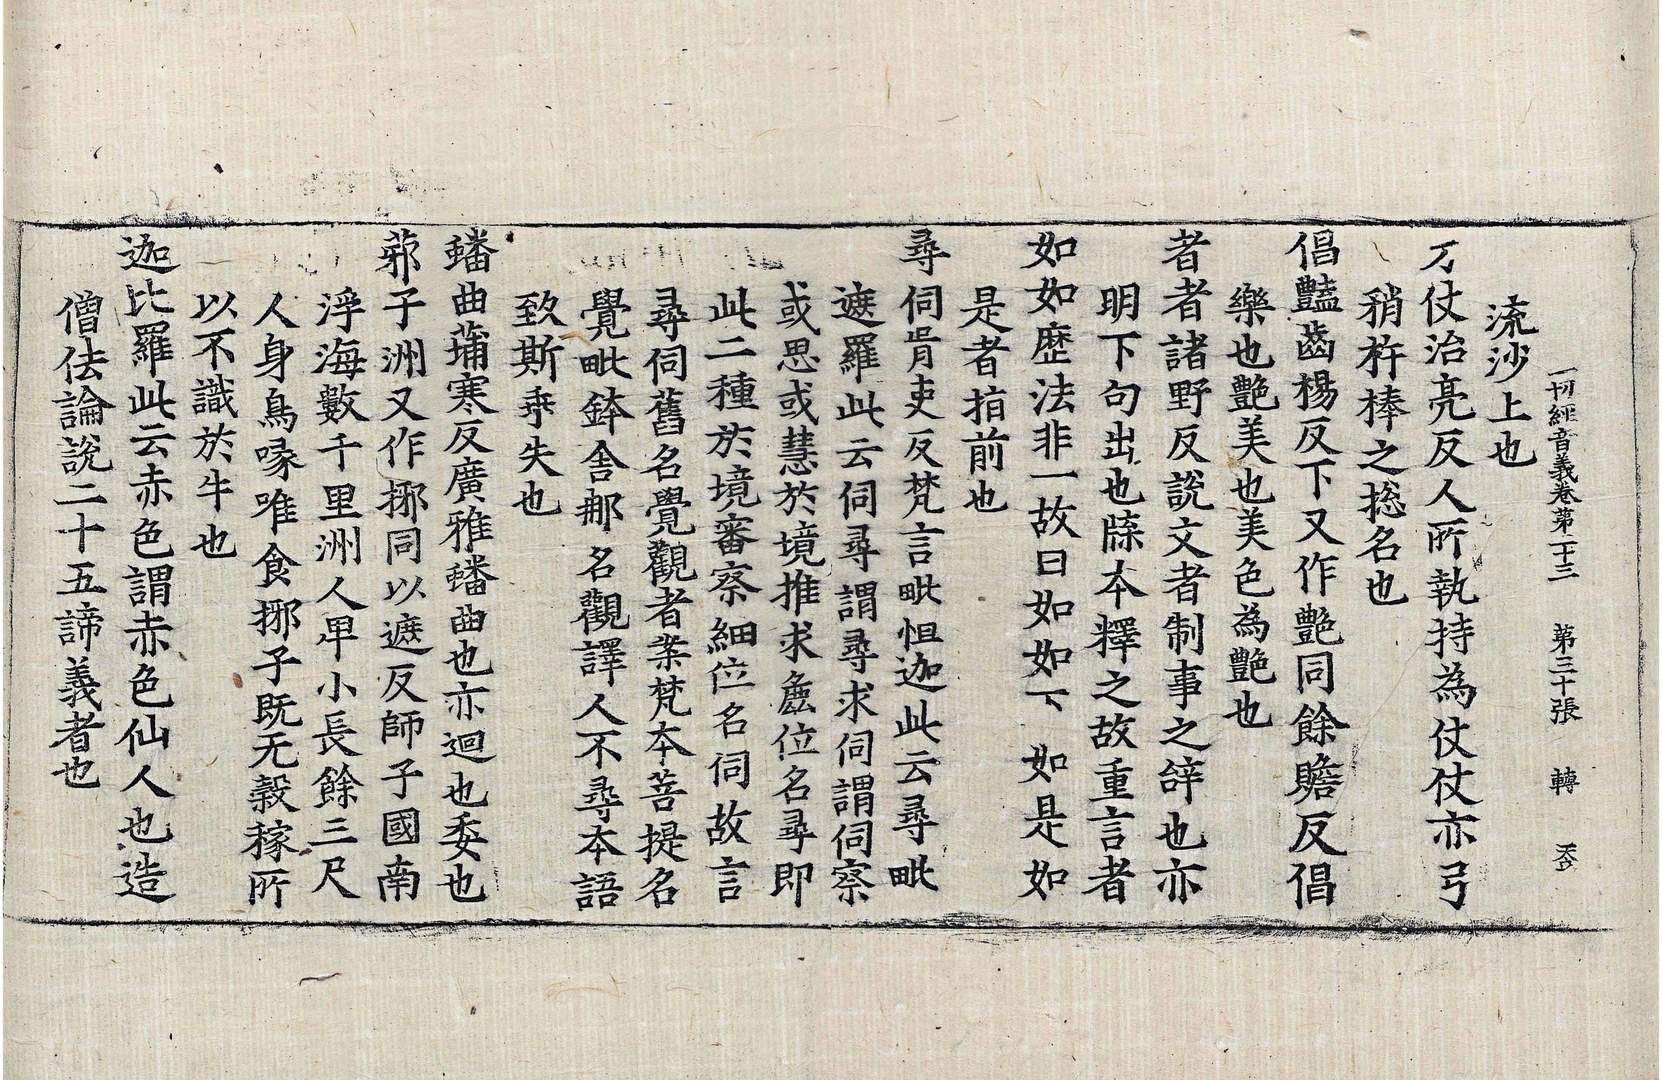 一切經音義卷第二十三 第三十張 轉
流沙上也
刀仗治亮反人所執持為仗仗亦弓
稍杵棒之揔名也
倡豔齒楊反下又作艷同餘贍反倡
樂也艷美也美色為艷也
者者諸野反說文者制事之辝也亦
明下句出也牒本釋之故重言者
如如歷法非一故曰如如下 如是如
是者指前也
尋伺胥吏反梵言毗怛迦此云尋毗
遮羅此云伺尋謂尋求伺謂伺察
或思或慧於境推求麁位名尋即
此二種於境審察細位名伺故言
尋伺舊名覺觀者案梵本菩提名
覺毗鉢舍那名觀譯人不尋本語
致斯乖失也
蟠曲蒱寒反廣雅蟠曲也亦迴也委也
䓉子洲又作㮈同以遮反師子國南
浮海數千里洲人卑小長餘三尺
人身鳥喙唯食㮈子既无穀稼所
以不識於牛也
迦比羅此云赤色謂赤色仙人也造
僧佉論說二十五諦義者也